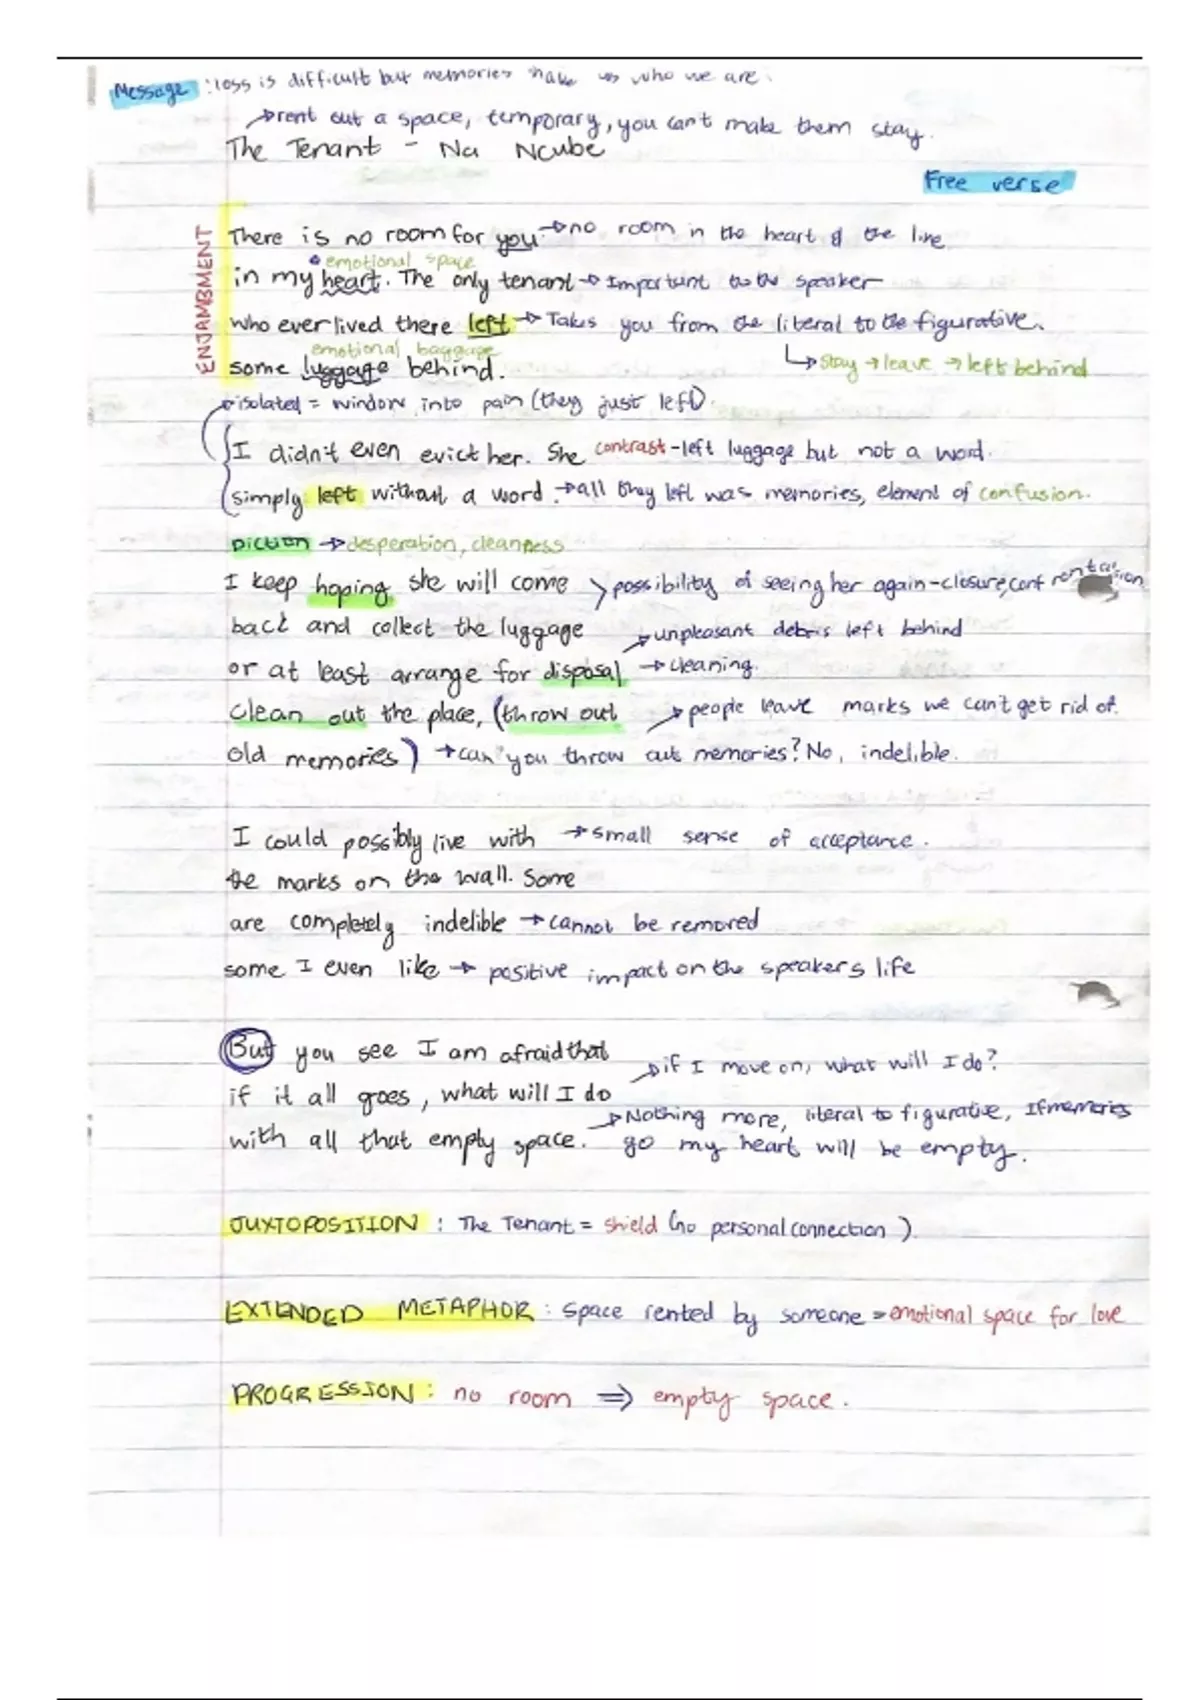 Message : loss is difficult but memories make us who we are.
→rent out a space, temporary, you can't make them stay.
The Tenant - Na Ncube
Free verse
ENJAMBMENT
There is no room for you →no room in the heart & the line
• emotional space
in my heart. The only tenant → Important to the speaker
who ever lived there left → Takes you from the literal to the figurative.
emotional baggage
some luggage behind.
↳ stay → leave → left behind
→isolated = window into pain (they just left).
I didn't even evict her. She contrast - left luggage but not a word.
simply left without a word. →all they left was memories, element of confusion.
Diction → desperation, cleanness
I keep hoping she will come > possibility of seeing her again - closure, confrontation
back and collect the luggage → unpleasant debris left behind
or at least arrange for disposal → cleaning.
clean out the place, (throw out → people leave marks we can't get rid of.
old memories) → can you throw out memories? No, indelible.
I could possibly live with → small sense of acceptance.
the marks on the wall. Some
are completely indelible → cannot be removed
some I even like → positive impact on the speakers life
But you see I am afraid that
→ if I move on, what will I do?
if it all goes, what will I do
→ Nothing more, literal to figurative, If memories
with all that empty space. go my heart will be empty.
JUXTOPOSITION : The Tenant = shield (no personal connection)
EXTENDED METAPHOR : Space rented by someone = emotional space for love
PROGRESSION : no room ⇒ empty space.